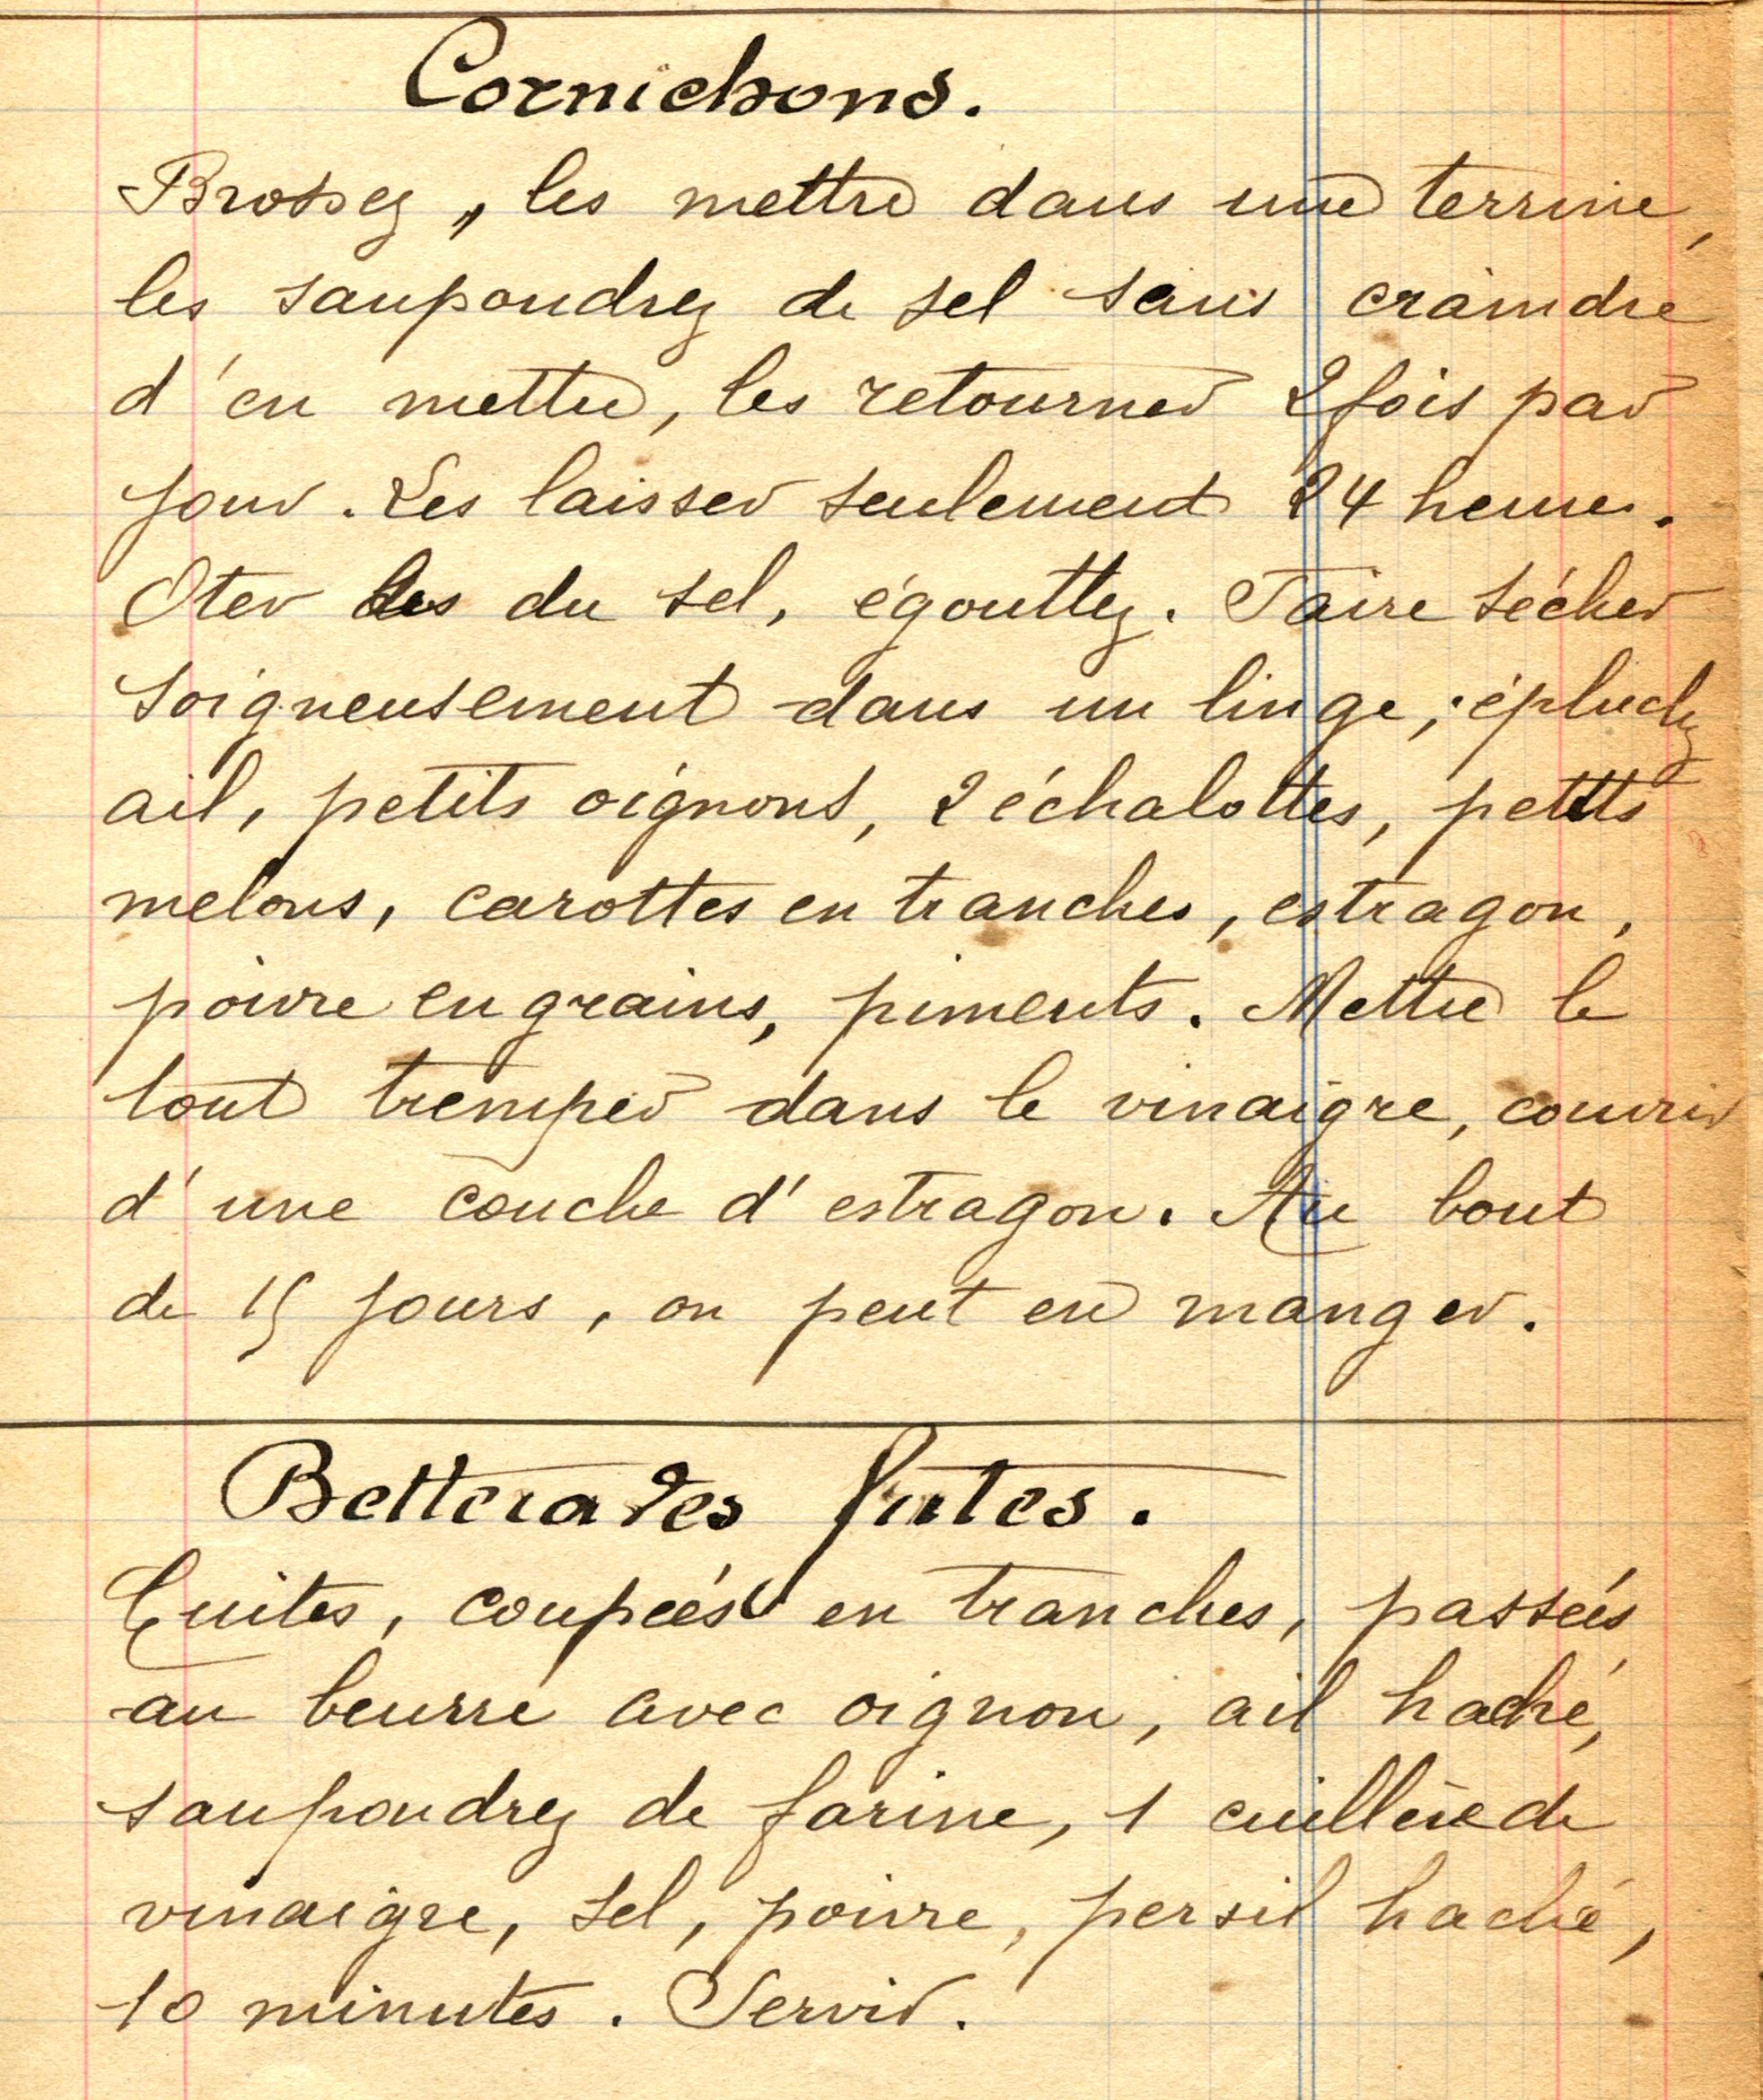 Cornichons.
Brossez, les mettre dans une terrine,
les saupoudrez de sel sans craindre
d'en mettre, les retourner 2 fois par
jour. Les laisser seulement 24 heures.
Oter les du sel, égouttez. Faire sécher
soigneusement dans un linge, épluchez
ail, petits oignons, 2 échalottes, petits
melons, carottes en tranches, estragon,
poivre en grains, piments. Mettre le
tout tremper dans le vinaigre, couvrir
d'une couche d'estragon. Au bout
de 15 jours, on peut en manger.
Betterades frites.
Cuites, coupées en tranches, passées
au beurre avec oignon, ail haché,
saupoudrez de farine, 1 cuillère de
vinaigre, sel, poivre, persil haché,
10 minutes. Servir.